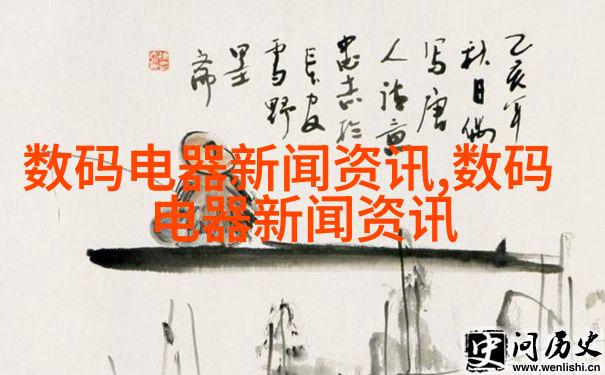 乙亥年
秋日偶
写唐
人诗意
忠志於
长安
雪野
墨
斋
数码电器新闻资讯,数码
电器新闻资讯
问历史
www.wenlishi.cn